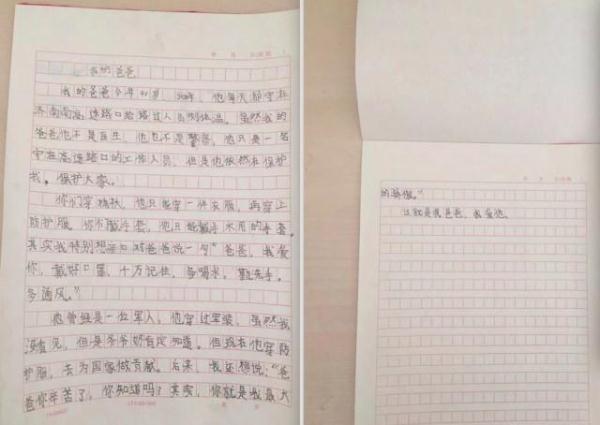 我的爸爸
我的爸爸今年41岁，他每天都守在
济南南高速路口给路过人员测体温。虽然我的
爸爸他不是医生，他也不是警察，他只是一名
守在高速路口的工作人员，但是他依然在保护
我，保护大家。
你们穿棉袄，他只能穿一件衣服，再穿上
防护服。你们戴手套，他只能戴不用的手套。
其实我特别想亲口对爸爸说一句“爸爸，我爱
你，戴好口罩，千万记住，多喝水，勤洗手，
多通风。”
他曾经是一位军人，他穿过军装，虽然我
没看见，但是爷爷奶肯定知道。但现在他穿防
护服，去为国家做贡献。后来，我还想说：“爸
爸你辛苦了，你知道吗？其实，你就是我最大
的骄傲。”
这就是我爸爸，我爱他。